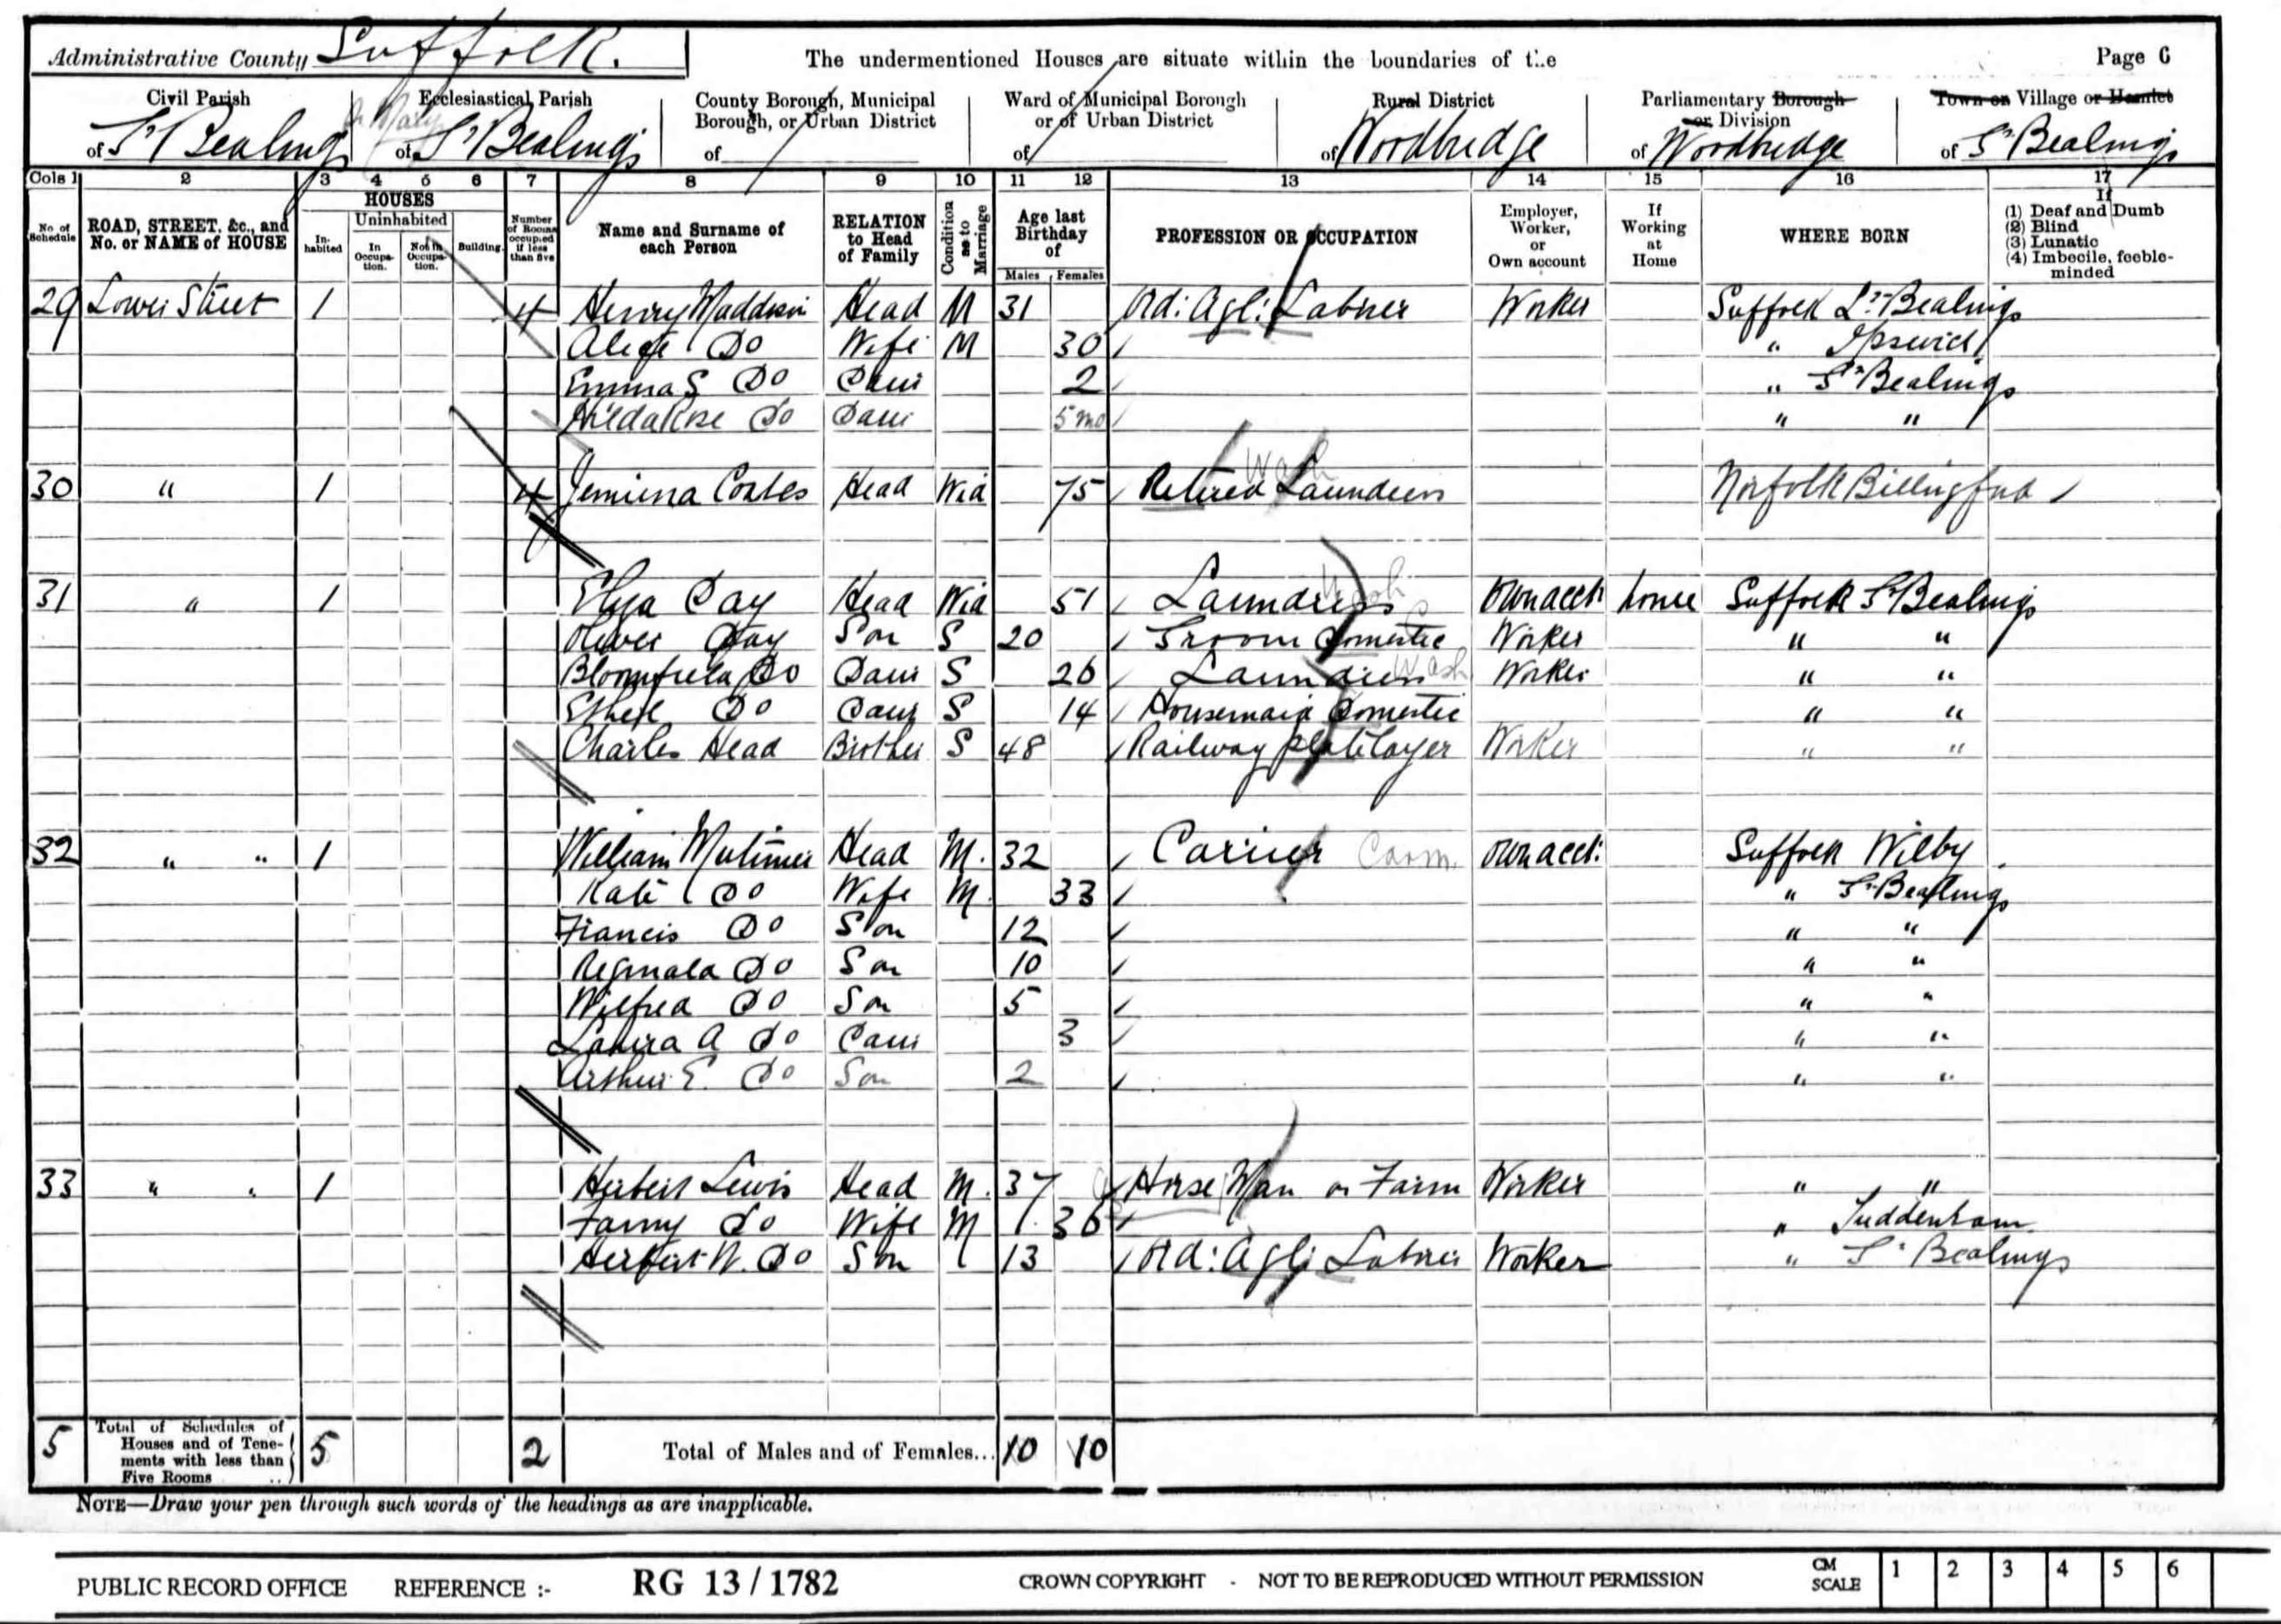 Administrative County Suffolk. The undermentioned Houses are situate within the boundaries of the Page 6
Civil Parish of Sth Bealings Ecclesiastical Parish of St Bealings County Borough, Municipal Borough, or Urban District of Ward of Municipal Borough or of Urban District of Rural District of Woodbridge Parliamentary Borough or Division of Woodbridge Town or Village or Hamlet of S Bealings
Cols 1 2 3 4 5 6 7 8 9 10 11 12 13 14 15 16 17
No of Schedule ROAD, STREET, &c., and No. or NAME of HOUSE HOUSES Inhabited Uninhabited In Occupation. Not in Occupation. Building. Number of Rooms occupied if less than five Name and Surname of each Person RELATION to Head of Family Condition as to Marriage Age last Birthday of Males Females PROFESSION OR OCCUPATION Employer, Worker, or Own account If Working at Home WHERE BORN If (1) Deaf and Dumb (2) Blind (3) Lunatic (4) Imbecile, feeble-minded
29 Lower Street 1 4 Henry Head M 31 Ord: Agl: Labrer Worker Suffolk Lt Bealings
Alice Do Wife M 30 " Ipswich
Emma S Do Daur 2 " St Bealings
Hilda Rose Do Daur 5 mo " "
30 " 1 4 Jemima Coates Head Wid 75 Retired Laundress Wash Norfolk Billingford
31 " 1 Eliza Day Head Wid 51 Laundress Wash Own acct home Suffolk St Bealings
Oliver Day Son S 20 Groom Domestic Worker " "
Bloomfield Do Daur S 26 Laundress Wash Worker " "
Ethel Do Daur S 14 Housemaid Domestic " "
Charles Head Brother S 48 Railway platelayer Worker " "
32 " " 1 William Mutimer Head M. 32 Carrier Carm. Own acct: Suffolk Wilby
Kate Do Wife M. 33 " St Bealings
Francis Do Son 12 " "
Reginald Do Son 10 " "
Wilfred Do Son 5 " "
Laura A Do Daur 3 " "
Arthur E. Do Son 2 " "
33 " " 1 Herbert Lewis Head M. 37 Horse Man on Farm Worker " "
Fanny Do Wife M 36 " Tuddenham
Herbert W. Do Son 13 Ord: Agl: Labrer Worker " S. Bealings
5 Total of Schedules of Houses and of Tenements with less than Five Rooms .. 5 2 Total of Males and of Females... 10 10
NOTE—Draw your pen through such words of the headings as are inapplicable.
PUBLIC RECORD OFFICE REFERENCE :- RG 13 / 1782 CROWN COPYRIGHT - NOT TO BE REPRODUCED WITHOUT PERMISSION CM SCALE 1 2 3 4 5 6